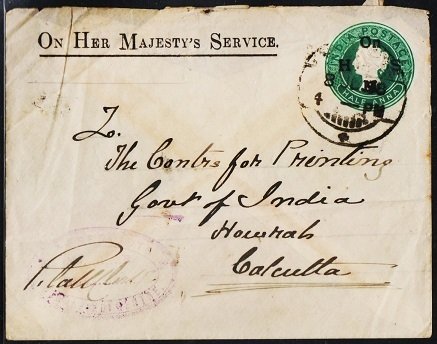 ON HER MAJESTY'S SERVICE.
INDIA POSTAGE
On
H S
M
HALF ANNA
PM
8
4
To
The Contr for Printing
Govt of India
Howrah
Calcutta